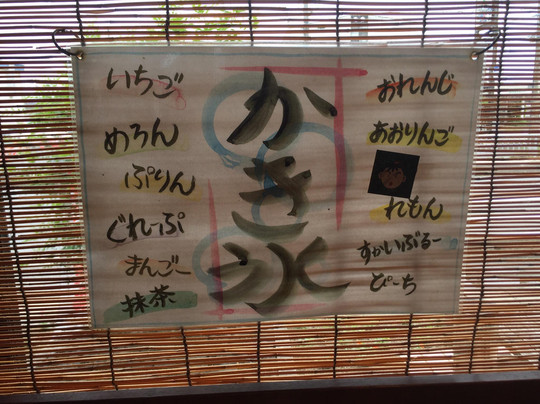 かき氷
いちご
めろん
ぷりん
ぐれーぷ
まんごー
抹茶
おれんじ
あおりんご
れもん
すかいぶるー
ぴーち